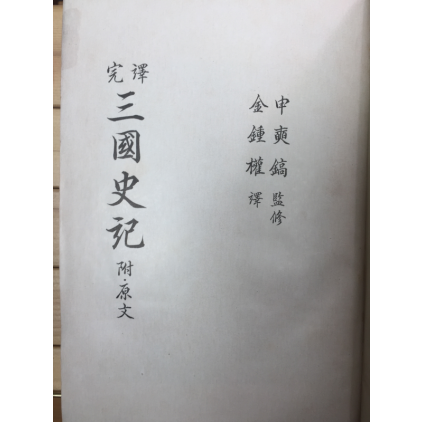 申奭鎬 監修
金鍾權 譯
完譯
三國史記
附·原文